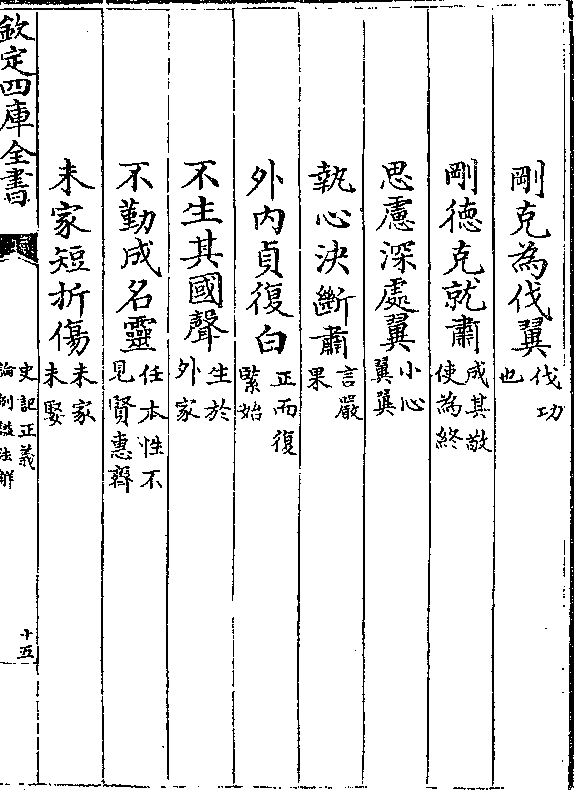 剛克為伐翼伐功也
剛德克就肅成其敬使為終
思慮深處翼小心翼翼
執心決斷肅言嚴果
外内貞復白正而復緊始
不生其國聲生於外家
不勤成名靈任本性不見賢惠齊
未家短折傷未家未娶
欽定四庫全書
史記正義
論例諡法解
十五